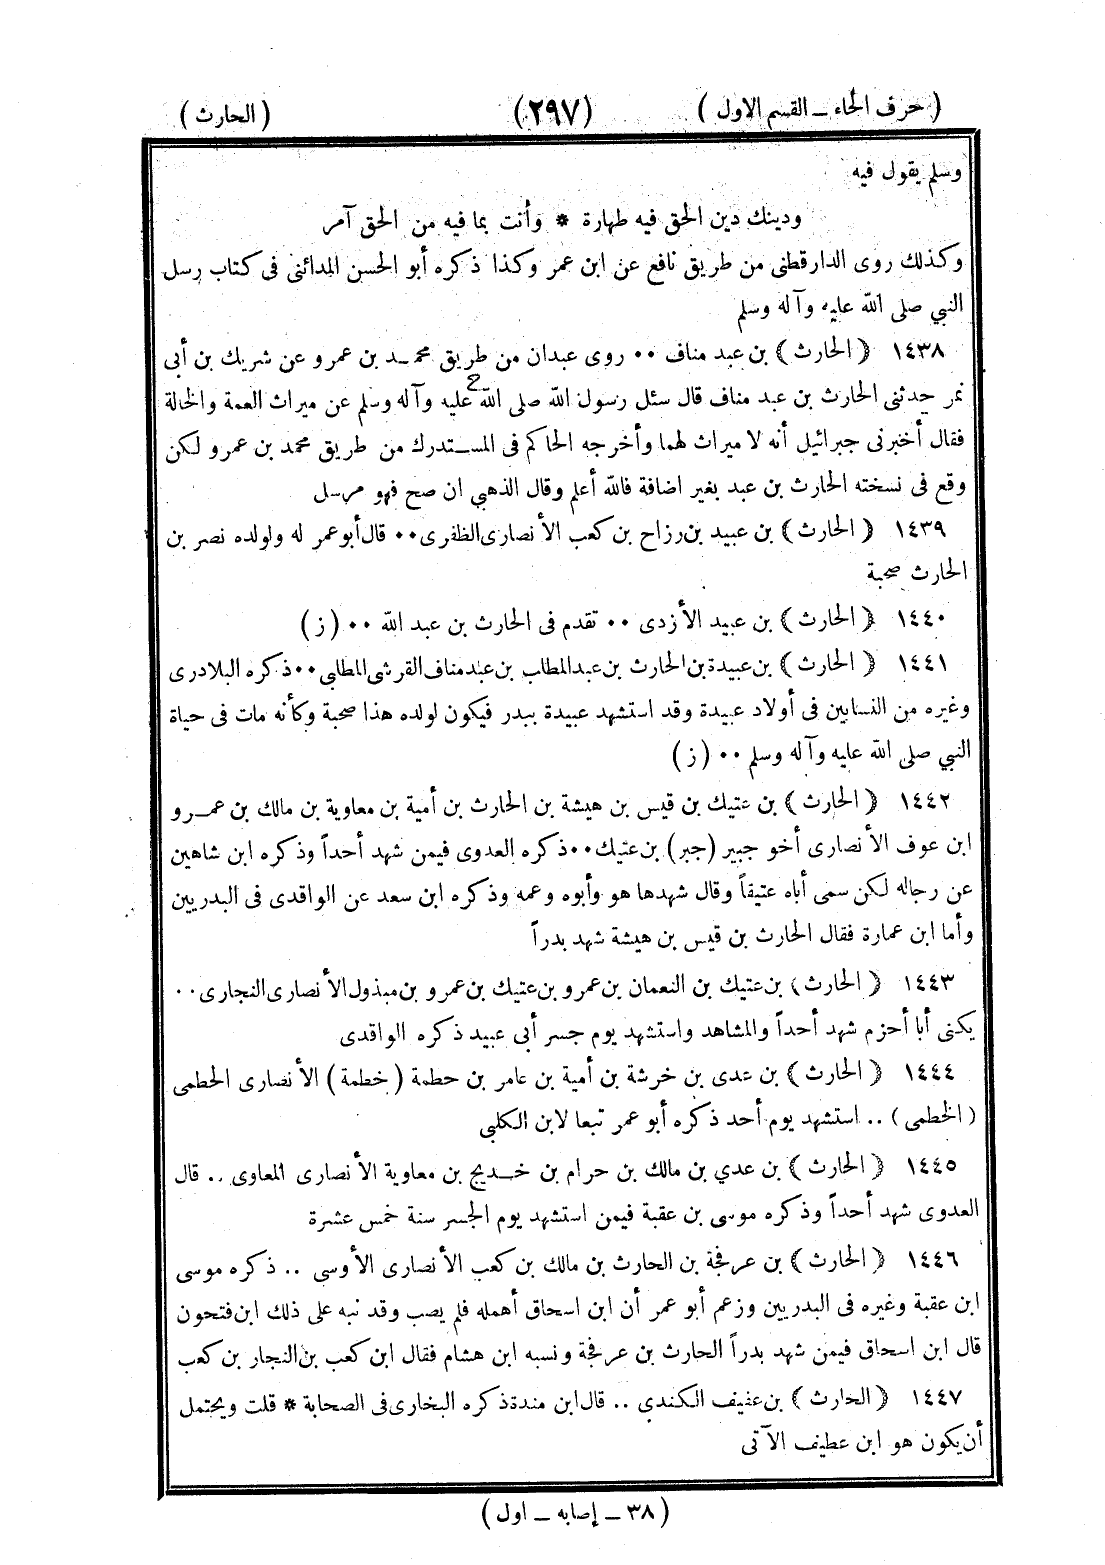 ( حرف الحاء ــ القسم الاول )
(٢٩٧)
( الحارث )
وسلم يقول فيه
ودينك دين الحق فيه طهارة * وأنت بما فيه من الحق آمر
وكذلك روى الدارقطنى من طريق نافع عن ابن عمر وكذا ذكره أبو الحسن المدائنى فى كتاب رسل
النبي صلى الله عليه وآله وسلم
١٤٣٨ ﴿ الحارث ﴾ بن عبد مناف ٠٠ روى عبدان من طريق محمد بن عمرو عن شريك بن أبى
نمر حدثنى الحارث بن عبد مناف قال سئل رسول الله صلى الله عليه وآله وسلم عن ميراث العمة والخالة
فقال أخبرنى جبرائيل أنه لا ميراث لهما وأخرجه الحاكم فى المستدرك من طريق محمد بن عمرو لكن
وقع فى نسخته الحارث بن عبد بغير اضافة فالله أعلم وقال الذهبي ان صح فهو مرسل
١٤٣٩ ﴿ الحارث ﴾ بن عبيد بن رزاح بن كعب الأنصارى الظفرى ٠٠ قال أبو عمر له ولولده نصر بن
الحارث صحبة
١٤٤٠ ﴿ الحارث ﴾ بن عبيد الأزدى ٠٠ تقدم فى الحارث بن عبد الله ٠٠ ( ز )
١٤٤١ ﴿ الحارث ﴾ بن عبيدة بن الحارث بن عبد المطلب بن عبد مناف القرشى المطلبي ٠٠ ذكره البلادرى
وغيره من النسابين فى أولاد عبيدة وقد استشهد عبيدة ببدر فيكون لولده هذا صحبة وكأنه مات فى حياة
النبي صلى الله عليه وآله وسلم ٠٠ ( ز )
١٤٤٢ ﴿ الحارث ﴾ بن عتيك بن قيس بن هيشة بن الحارث بن أمية بن معاوية بن مالك بن عمرو
ابن عوف الأنصارى أخو جبير (جبر) بن عتيك ٠٠ ذكره العدوى فيمن شهد أحداً وذكره ابن شاهين
عن رجاله لكن سمى أباه عتيقاً وقال شهدها هو وأبوه وعمه وذكره ابن سعد عن الواقدى فى البدريين
وأما ابن عمارة فقال الحارث بن قيس بن هيشة شهد بدراً
١٤٤٣ ﴿ الحارث ﴾ بن عتيك بن النعمان بن عمرو بن عتيك بن عمرو بن مبذول الأنصارى النجارى ٠٠
يكنى أبا أحزم شهد أحداً والمشاهد واستشهد يوم جسر أبى عبيد ذكره الواقدى
١٤٤٤ ﴿ الحارث ﴾ بن عدى بن خرشة بن أمية بن عامر بن حطمة ( خطمة ) الأنصارى الحطمى
( الخطمى ) .. استشهد يوم أحد ذكره أبو عمر تبعا لابن الكلبي
١٤٤٥ ﴿ الحارث ﴾ بن عدي بن مالك بن حرام بن خديج بن معاوية الأنصارى المعاوى .. قال
العدوى شهد أحداً وذكره موسى بن عقبة فيمن استشهد يوم الجسر سنة خمس عشرة
١٤٤٦ ﴿ الحارث ﴾ بن عرفجة بن الحارث بن مالك بن كعب الأنصارى الأوسى .. ذكره موسى
ابن عقبة وغيره فى البدريين وزعم أبو عمر أن ابن اسحاق أهمله فلم يصب وقد نبه على ذلك ابن فتحون
قال ابن اسحاق فيمن شهد بدراً الحارث بن عرفجة ونسبه ابن هشام فقال ابن كعب بن النجار بن كعب
١٤٤٧ ﴿ الحارث ﴾ بن عفيف الكندي .. قال ابن مندة ذكره البخارى فى الصحابة * قلت ويحتمل
أن يكون هو ابن عطيف الآتى
( ٣٨ ــ إصابه ــ اول )